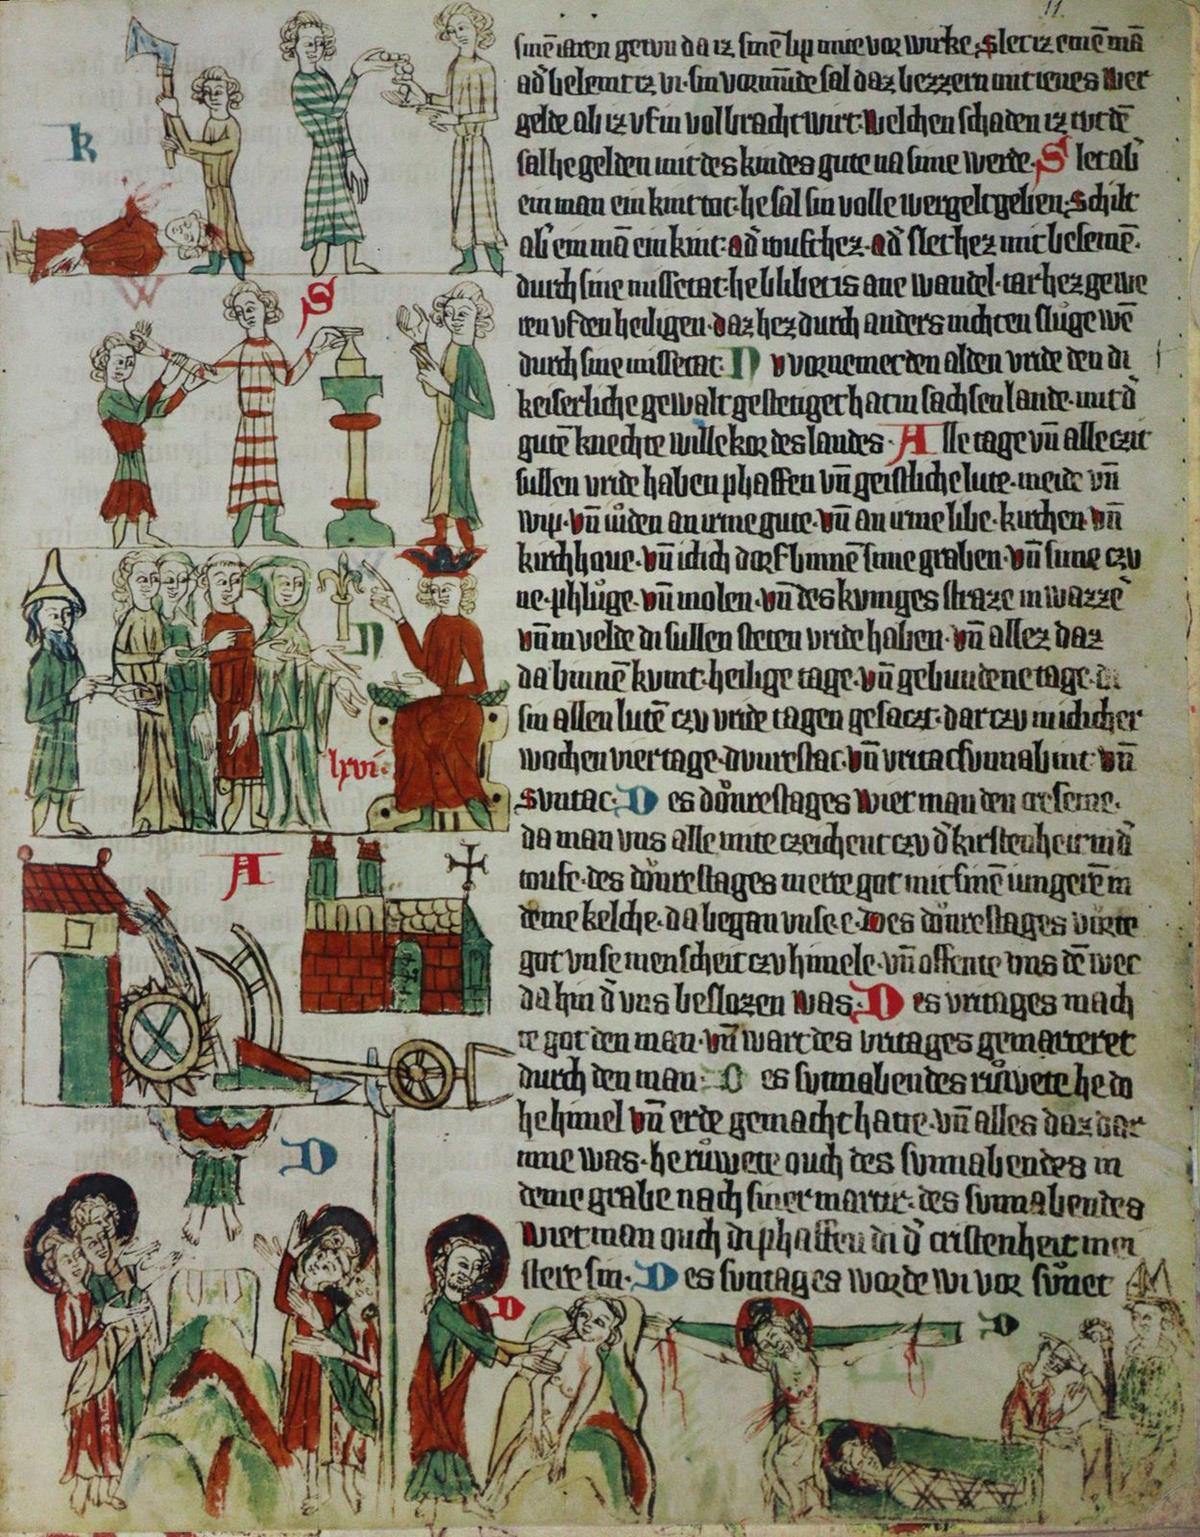 11.
sinē iaren getun da iz sinē lip mite vor wirke. Slet iz einē mā
ad' belemt iz in. sin vormūde sal daz bezzern mit ienes wer
gelde ab iz vf in volbracht wirt. Welchen schaden iz tut dē
sal he gelden mit des kindes gute na sime werde. Slet ab'
ein man ein kint tot. he sal sin volle wergelt geben. Schilt
ab' ein mā ein kint. ad' roufthez. ad' slet hez mit besemē.
durch sine missetat. he blibet is ane wandel. tar hez gewe
ren vf den heiligen. daz hez durch anders nicht en sluge wē
durch sine missetat. Nv vornemet den alden vride den di
keiserliche gewalt gestetiget hat in sachsen lande. mit d'
gutē knechte willekor des landes. Alle tage vn̄ alle czit
sullen vride haben phaffen vn̄ geistliche lute. meide vn̄
wip. vn̄ iůden an irme gute. vn̄ an irme libe. kirchen. vn̄
kirchhoue. vn̄ iclich dorf binnē sime graben. vn̄ sime czu
ne. phlůge. vn̄ molen. vn̄ des kuniges straze in wazzē
vn̄ in velde di sullen steten vride haben. vn̄ allez daz
da binnē kumt. heilige tage. vn̄ gebundene tage. di
sin allen lutē czu vride tagen gesaczt. dar czu in iclicher
wochen vier tage. dunrestac. vn̄ vritac sunnabint. vn̄
Suntac. Des důnrestages wiet man den creseme.
da man uns alle mite czeichent czu d' kirstenheit in d'
toufe. des dunrestages merte got mit sinē iungerē in
deme kelche. da began unse e. Des dunrestages vůrte
got unse menscheit czu himele. vn̄ offente uns dē wec
da hin d' uns beslozen was. Des vritages mach
te got den man. vn̄ wart des vritages gemarteret
durch den man. Des sunnabendes růwete he do
he himel vn̄ erde gemacht hatte. vn̄ alles daz dar
inne was. he růwete ouch des sunnabendes in
deme grabe nach siner martir. des sunnabendes
wiet man ouch di phaffen di d' cristenheit mei
stere sin. Des suntages worde wi vor sůnet
K
W
S
N
lxvi.
A
D
D
D